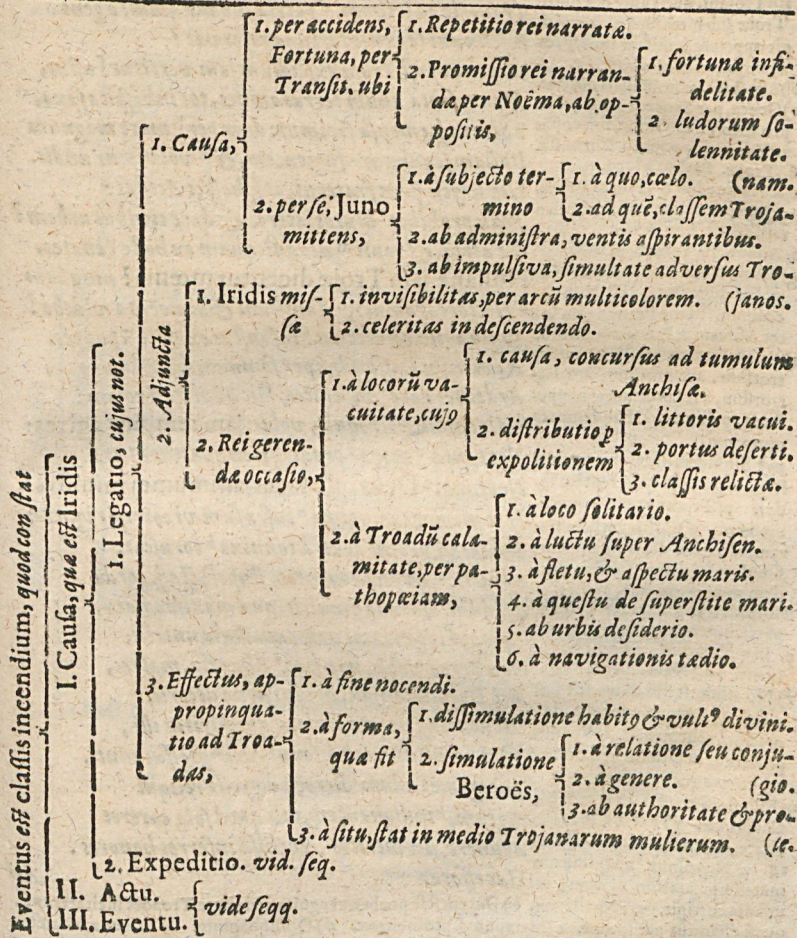 Eventus est classis incendium, quod constat
I. Causa, quæ est Iridis
1. Legatio, cujus not.
1. Causa,
1. per accidens,
Fortuna, per
Transit. ubi
1. Repetitio rei narratæ.
2. Promissio rei narran-
dæ per Noëma, ab op-
positis,
1. fortunæ infi-
delitate.
2. ludorum so-
lennitate.
2. per se, Juno
mittens,
1. à subjecto ter-
mino
1. à quo, cœlo.
2. ad quẽ, classem Troja- (nam.
2. ab administra, ventis aspirantibus.
3. ab impulsiva, simultate adversus Tro-
(janos.
2. Adjuncta
1. Iridis mis-
sæ
1. invisibilitas, per arcũ multicolorem.
2. celeritas in descendendo.
2. Rei geren-
dæ occasio,
1. à locorũ va-
cuitate, cujꝰ
1. causa, concursus ad tumulum
Anchisæ.
2. distributio p
expolitionem
1. littoris vacui.
2. portus deserti.
3. classis relictæ.
2. à Troadũ cala-
mitate, per pa-
thopœiam,
1. à loco solitario.
2. à luctu super Anchisen.
3. à fletu, & aspectu maris.
4. à questu de superstite mari.
5. ab urbis desiderio.
6. à navigationis tædio.
3. Effectus, ap-
propinqua-
tio ad Troa-
das,
1. à fine nocendi.
2. à forma,
quæ fit
1. dissimulatione habitꝰ & vultꝰ divini.
2. simulatione
Beroës,
1. à relatione seu conju-
(gio.
2. à genere.
3. ab authoritate & pro-
(le.
3. à situ, stat in medio Trojanarum mulierum.
2. Expeditio. vid. seq.
II. Actu.
III. Eventu.
vide seqq.